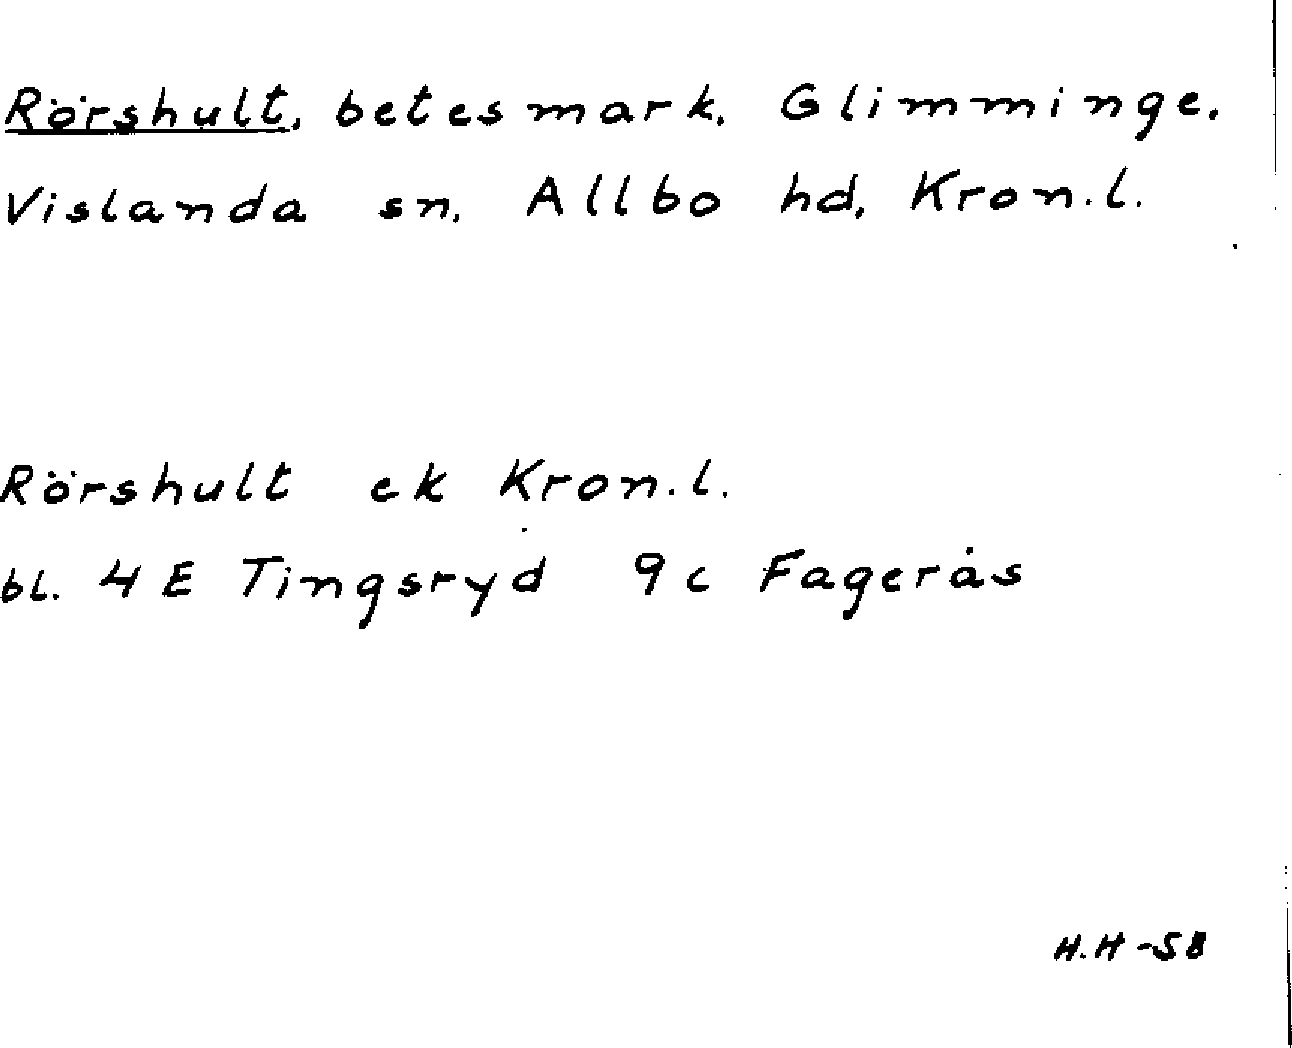 Rörshult, betesmark. Glimminge.
Vislanda sn. Allbo hd. Kron.l.
Rörshult ek Kron.l.
bl. 4 E Tingsryd 9c Fagerås
H.H -58